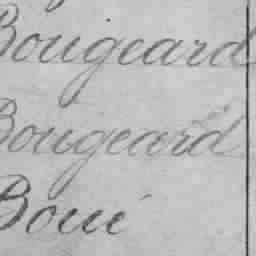 Bougeard
Bougeard
Boué